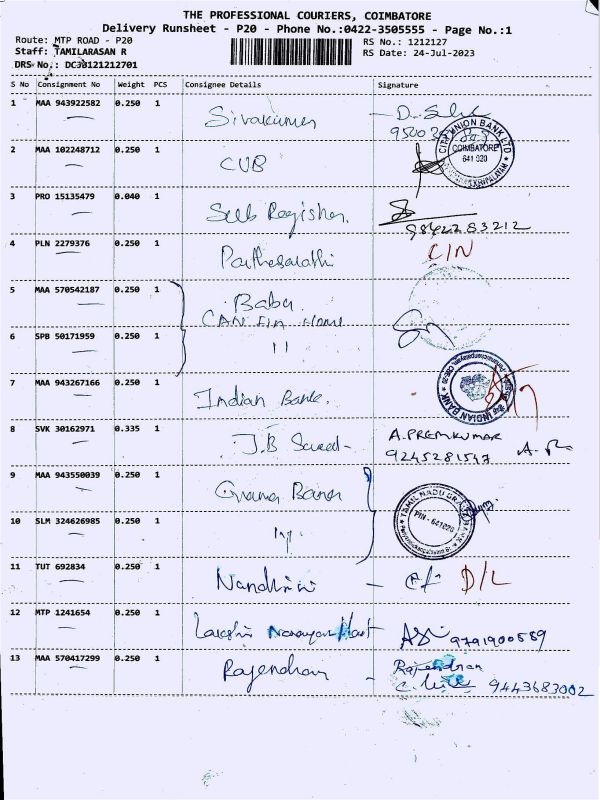 THE PROFESSIONAL COURIERS, COIMBATORE
Delivery Runsheet - P20 - Phone No.:0422-3505555 - Page No.:1
Route: MTP ROAD - P20
RS No.: 1212127
Staff: TAMILARASAN R
RS Date: 24-Jul-2023
DRS No.: DC38121212701
S No Consignment No Weight PCS Consignee Details Signature
1 MAA 943922582 0.250 1 Sivakumar
2 MAA 102248712 0.250 1 CUB CITY UNION BANK LTD COIMBATORE 641 020
3 PRO 15135479 0.040 1 Sub Register. 9842283212
4 PLN 2279376 0.250 1 Parthasarathi C/N
5 MAA 570542187 0.250 1 Babu
CAN FIN Home
6 SPB 50171959 0.250 1 11
7 MAA 943267166 0.250 1 Indian Bank. INDIAN BANK
8 SVK 30162971 0.335 1 J.B A.PREMKUMAR
9245281547
9 MAA 943550039 0.250 1 Grama Bank TAMIL NADU GRAMA BANK PIN - 641020
10 SLM 324626985 0.250 1
11 TUT 692834 0.250 1 Nandhini - D/L
12 MTP 1241654 0.250 1 Lakshmi Narayan 9791900589
13 MAA 570417299 0.250 1 Rajendran - Rajendran
9443683002